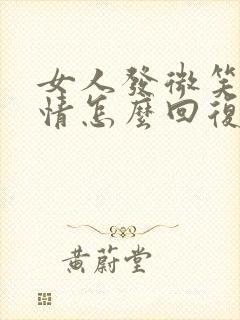 女人發微笑
情怎麼回復
黃蔚堂